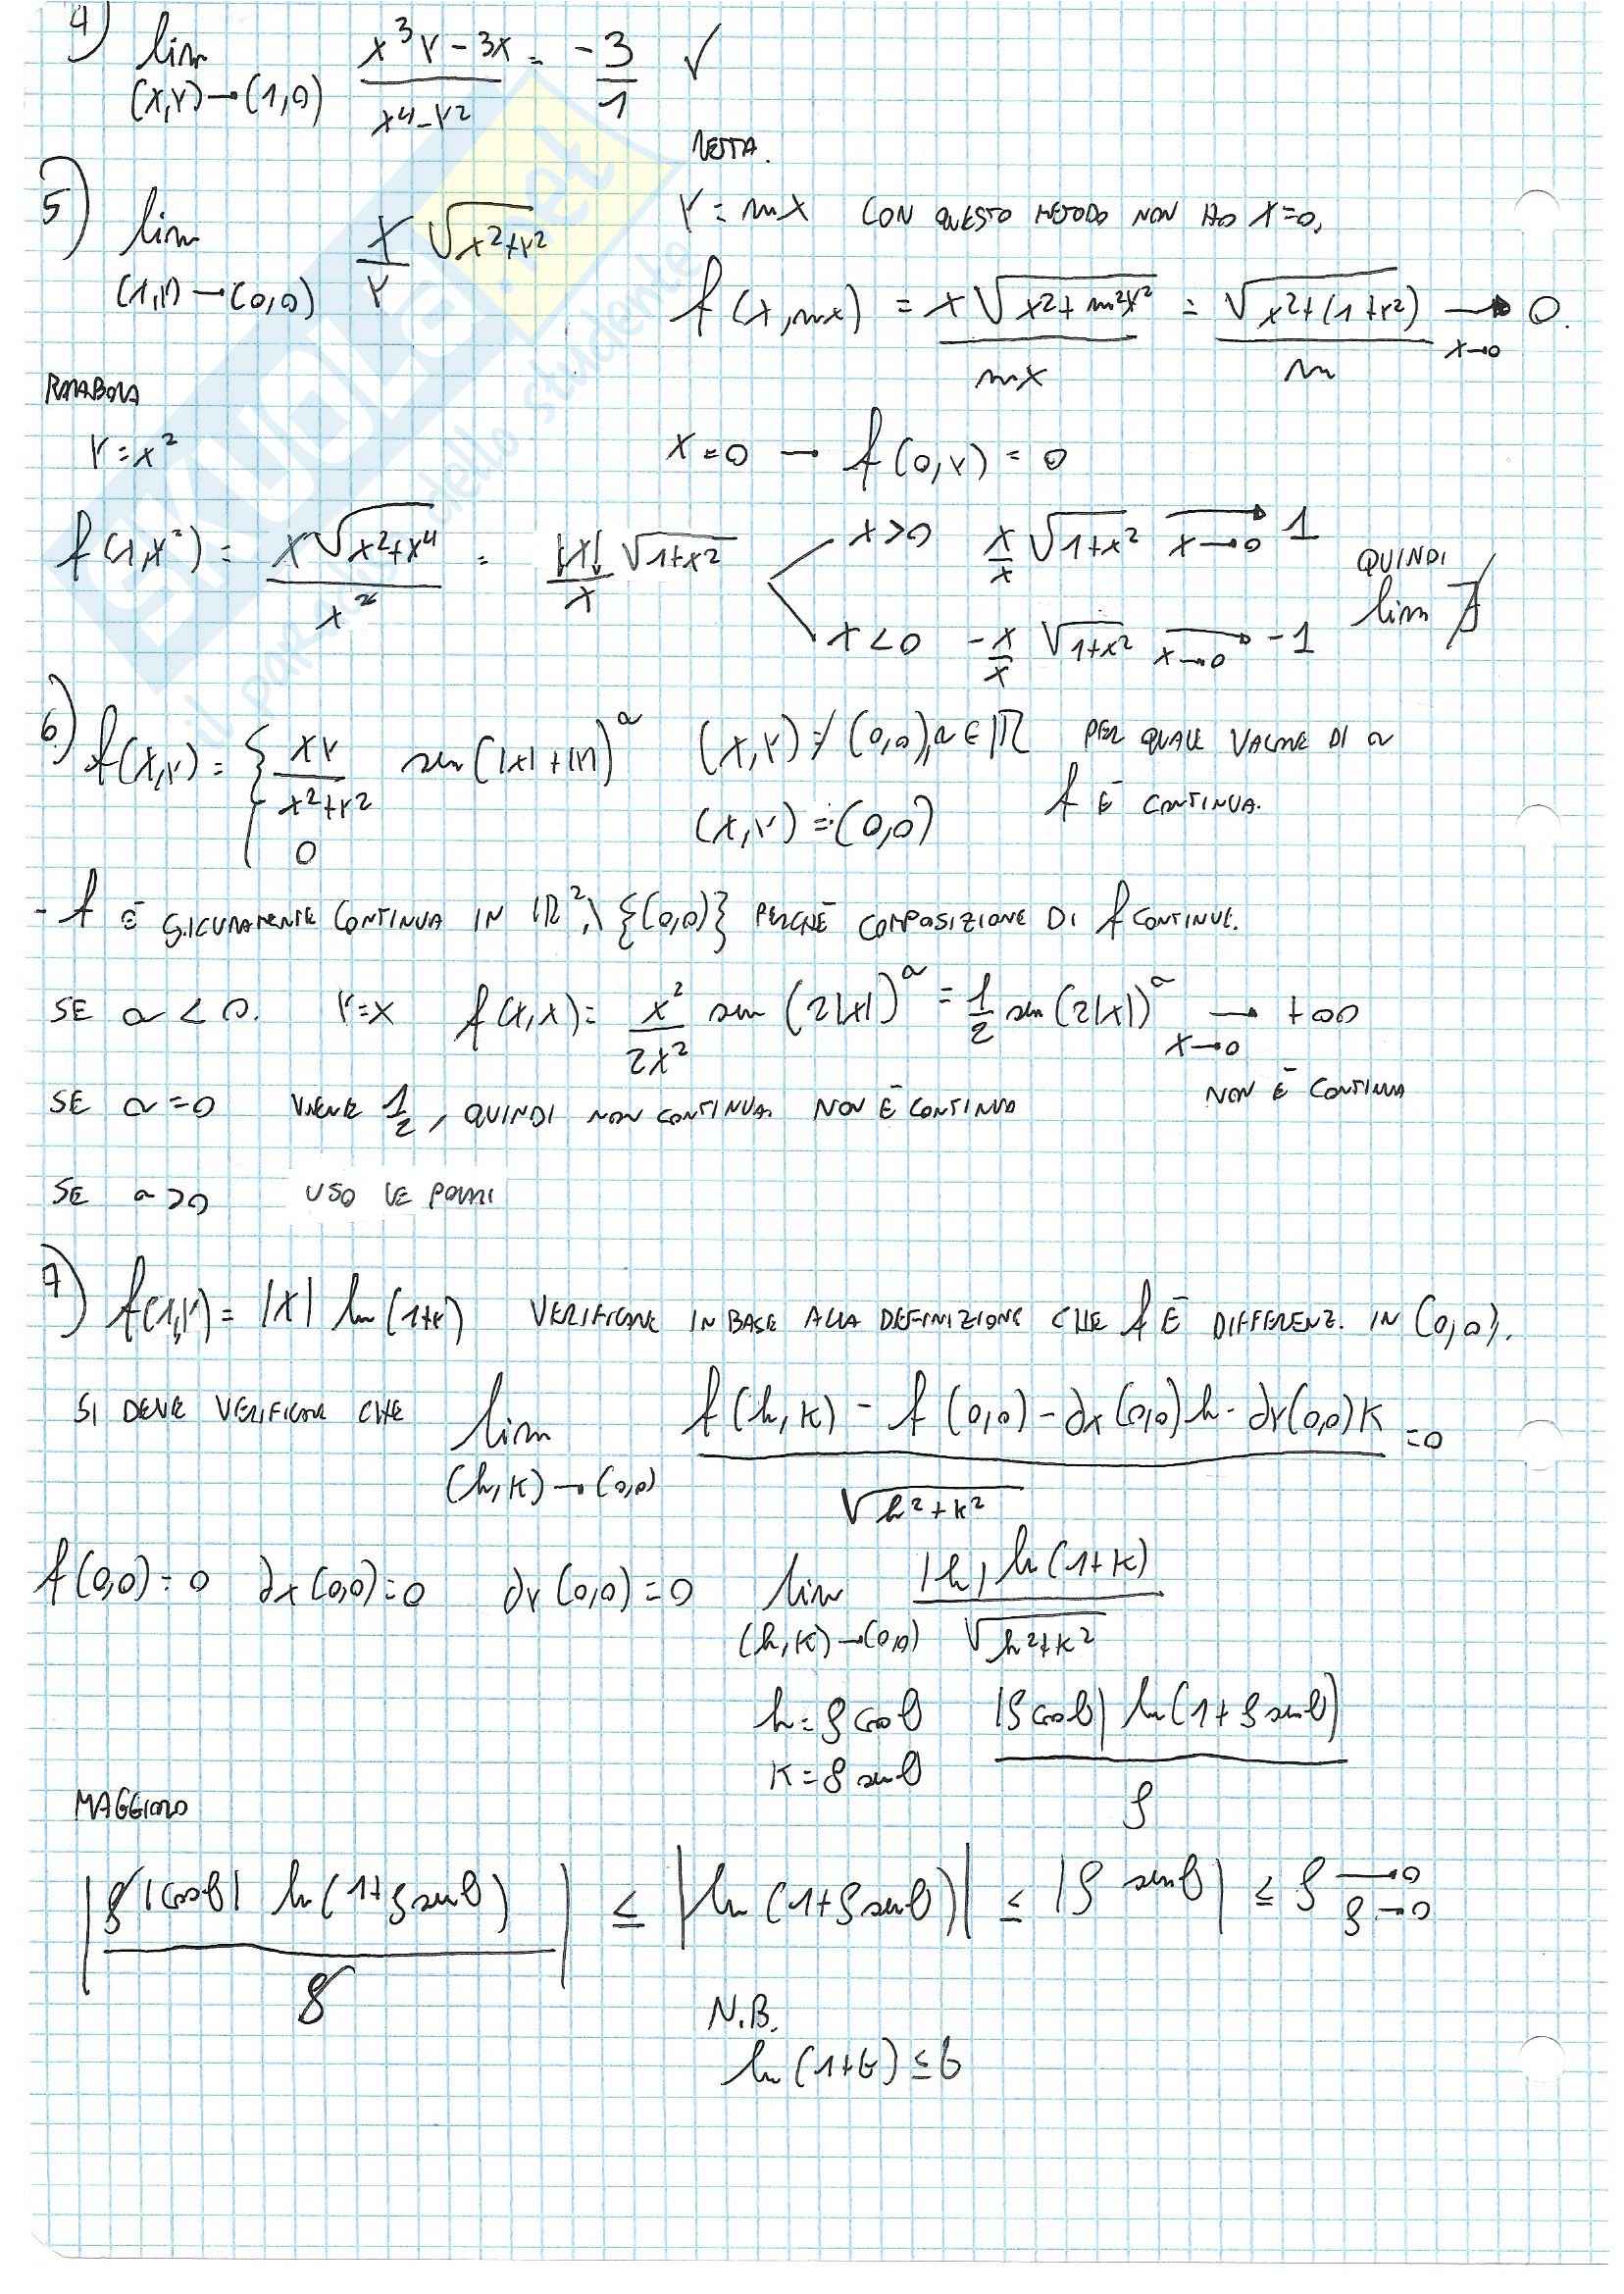 4) lim (x,y)→(1,0) x³y-3x / x⁴-y² = -3/1 ✓
RETTA.
5) lim (x,y)→(0,0) x/y √x²+y² Y=mX CON QUESTO METODO NON HO X=0,
f(x,mx) = x√x²+m²x² / mx = √x²+(1+x²) / m → x→0 0.
PARABOLA
Y=x² X=0 → f(0,Y)=0
f(x,x²)= x√x²+x⁴ / x² = |x|/x √1+x² x>0 x/x √1+x² → x→0 1
x<0 -x/x √1+x² → x→0 -1 QUINDI lim ∄
6) f(x,y)= { xy / x²+y² sen(|x|+|y|)^a (x,y)≠(0,0), a∈ℝ PER QUALE VALORE DI a
0 (x,y)=(0,0) f È CONTINUA.
- f È SICURAMENTE CONTINUA IN ℝ²\{(0,0)} PERCHÈ COMPOSIZIONE DI f CONTINUE.
SE a<0. Y=X f(x,x)= x²/2x² sen(2|x|)^a = 1/2 sen(2|x|)^a → x→0 +∞
NON È CONTINUA
SE a=0 VIENE 1/2, QUINDI NON CONTINUA. NON È CONTINUA
SE a>0 USO LE POLARI
7) f(x,y)= |x| ln(1+y) VERIFICARE IN BASE ALLA DEFINIZIONE CHE f È DIFFERENZ. IN (0,0).
SI DEVE VERIFICAR CHE lim (h,K)→(0,0) f(h,K) - f(0,0) - ∂x(0,0)h - ∂y(0,0)K / √h²+k² =0
f(0,0)=0 ∂x(0,0)=0 ∂y(0,0)=0 lim (h,K)→(0,0) |h| ln(1+K) / √h²+k²
h=ρcosθ |ρcosθ| ln(1+ρsenθ) / ρ
K=ρsenθ
MAGGIORO
| ρ|cosθ| ln(1+ρsenθ) / ρ | ≤ |ln(1+ρsenθ)| ≤ |ρ senθ| ≤ ρ → ρ→0 0
N.B.
ln(1+t)≤t